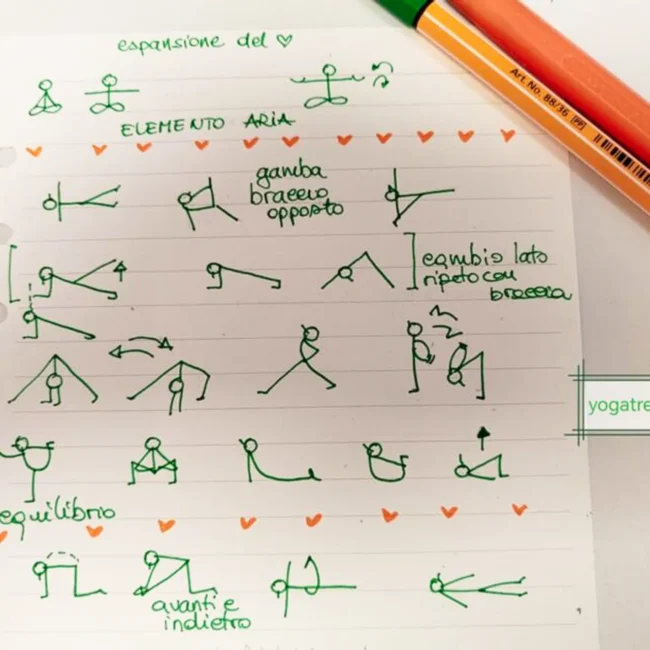 espansione del
ELEMENTO ARIA
gamba
braccio
opposto
cambio lato
ripeto con
braccia
equilibrio
avanti e
indietro
Art. No. 88/36
yogatre